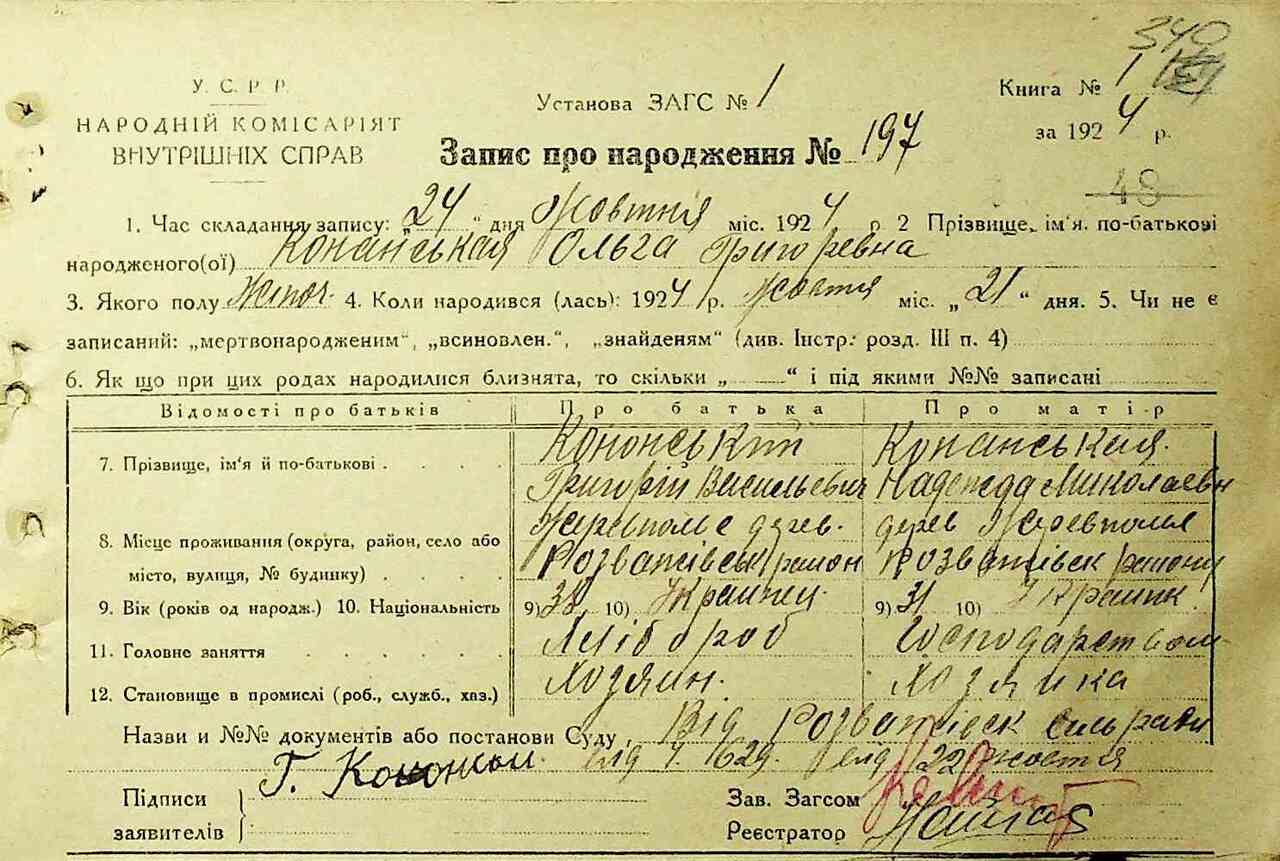 340
У. С. Р. Р.
НАРОДНІЙ КОМІСАРІЯТ
ВНУТРІШНІХ СПРАВ
Установа ЗАГС № 1
Книга № 1
за 1924 р.
Запис про народження № 197
48
1. Час складання запису: „24“ дня Жовтня міс. 1924 р. 2 Прізвище, ім'я. по-батькові
народженого(ої) Конанськая Ольга Григоревна
3. Якого полу Жіноч. 4. Коли народився (лась): 1924 р. Жовтня міс. „21“ дня. 5. Чи не є
записаний: „мертвонародженим“, „всиновлен.“, „знайденям“ (див. Інстр. розд. III п. 4)
6. Як що при цих родах народилися близнята, то скільки „ “ і під якими №№ записані
Відомості про батьків Про батька Про матір
7. Прізвище, ім'я й по-батькові Кононський Конанськая.
Григорій Васильевич Надежда Миколаевн
8. Місце проживання (округа, район, село або дерев. дерев
місто, вулиця, № будинку) Розважівськ район Розважівск району
9. Вік (років од народж.) 10. Національність 9) 38 10) Украинец 9) 31 10) Украинк
11. Головне заняття Хлібороб Господарством
12. Становище в промислі (роб., служб., хаз.) Хозяин. Хозяйка
Назви и №№ документів або постанови Суду Від Розважівск сильради
від 22 жовтня
Г.
Підписи
заявителів
Зав. Загсом
Реєстратор